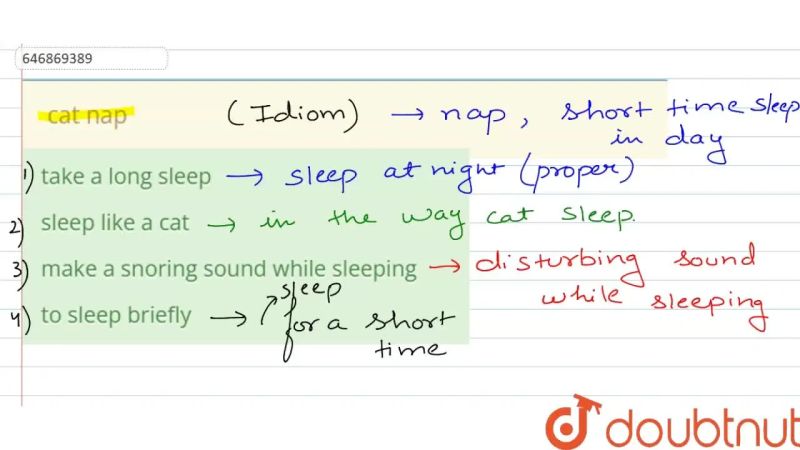 646869389
cat nap (Idiom) → nap, short time sleep
in day
1) take a long sleep → sleep at night (proper)
2) sleep like a cat → in the way cat sleep.
3) make a snoring sound while sleeping → disturbing sound
while sleeping
4) to sleep briefly → sleep
for a short
time
doubtnut